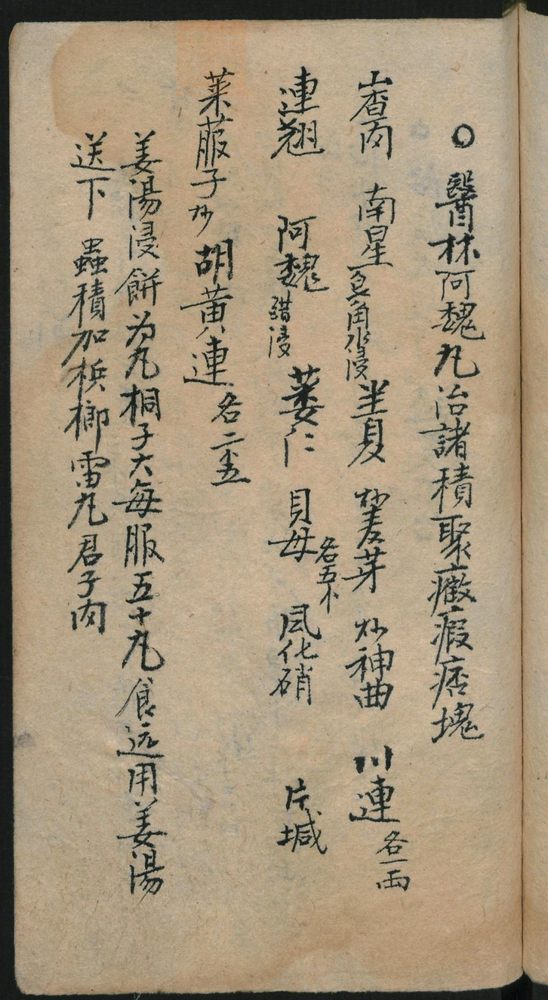 ○醫林阿魏丸治諸積聚癥瘕痞塊
山查肉 南星皂角水浸 半夏 炒麦芽 炒神曲 川連各一両
連翹 阿魏醋浸 蒌仁 貝母各五卜 風化硝 片堿
莱菔子炒 胡黄連各二卜五
姜湯浸餅为丸桐子大每服五十丸食远用姜湯
送下 蟲積加梹榔雷丸君子肉